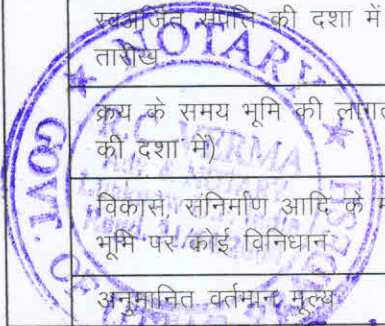 स्वअर्जित संपत्ति की दशा में
तारीख
क्रय के समय भूमि की लागत
की दशा में)
विकास, संनिर्माण आदि के म
भूमि पर कोई विनिधान
अनुमानित वर्तमान मूल्य
NOTARY
GOVT. OF
VERMA